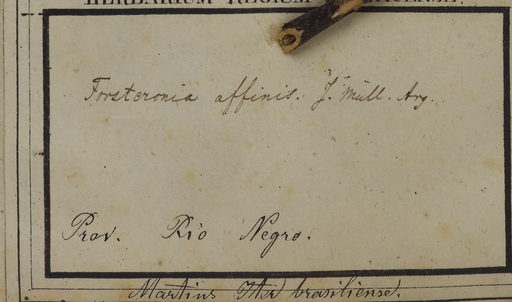 HERBARIUM REGIUM
Forsteronia affinis. J. Müll. Arg.
Prov. Rio Negro.
Martius Iter brasiliense.